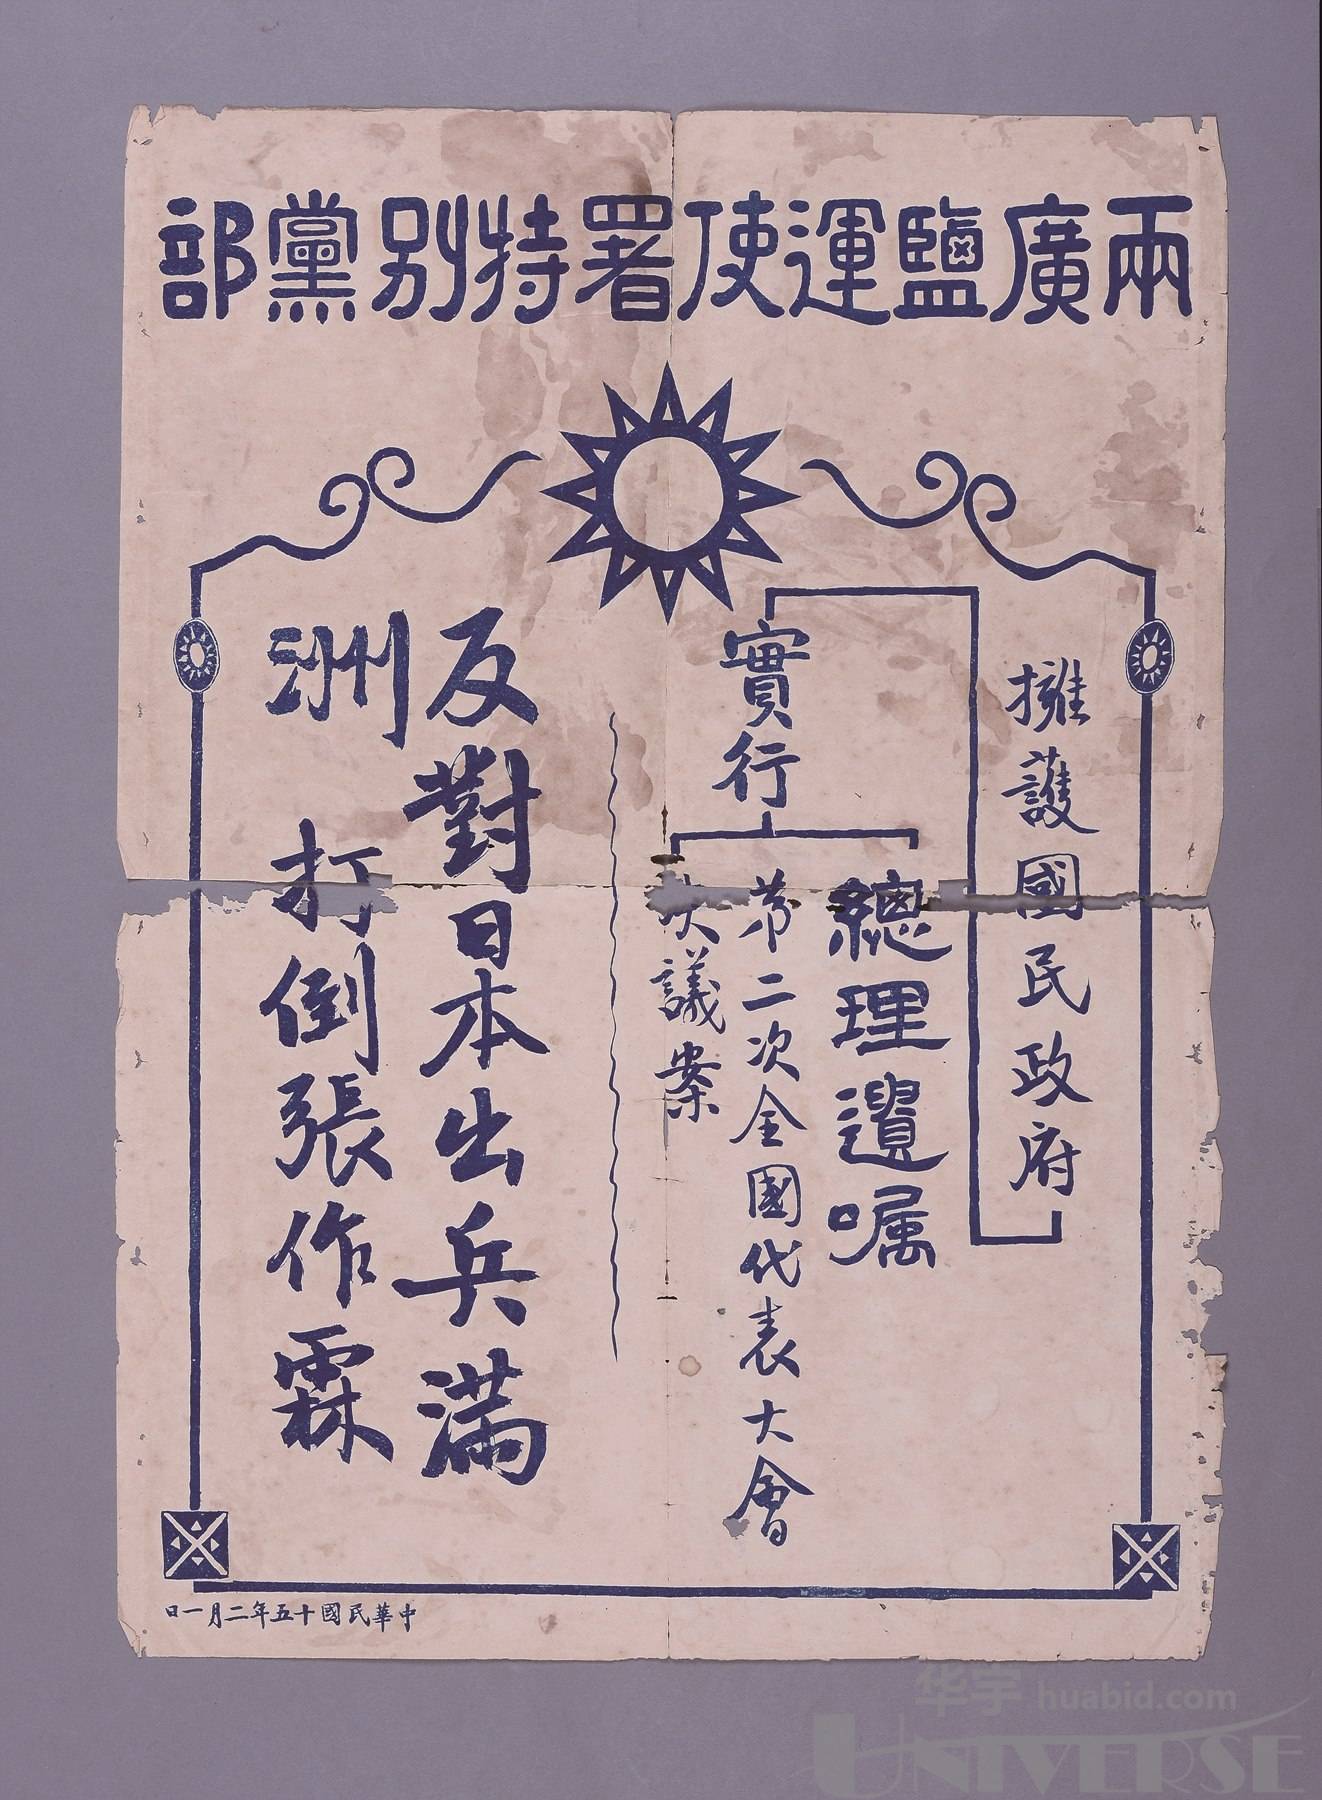 兩廣鹽運使署特別黨部
擁護國民政府
實行
總理遺嘱
第二次全國代表大會
決議案
反對日本出兵滿
洲 打倒張作霖
中華民國十五年二月一日
华宇 huabid.com
UNIVERSE